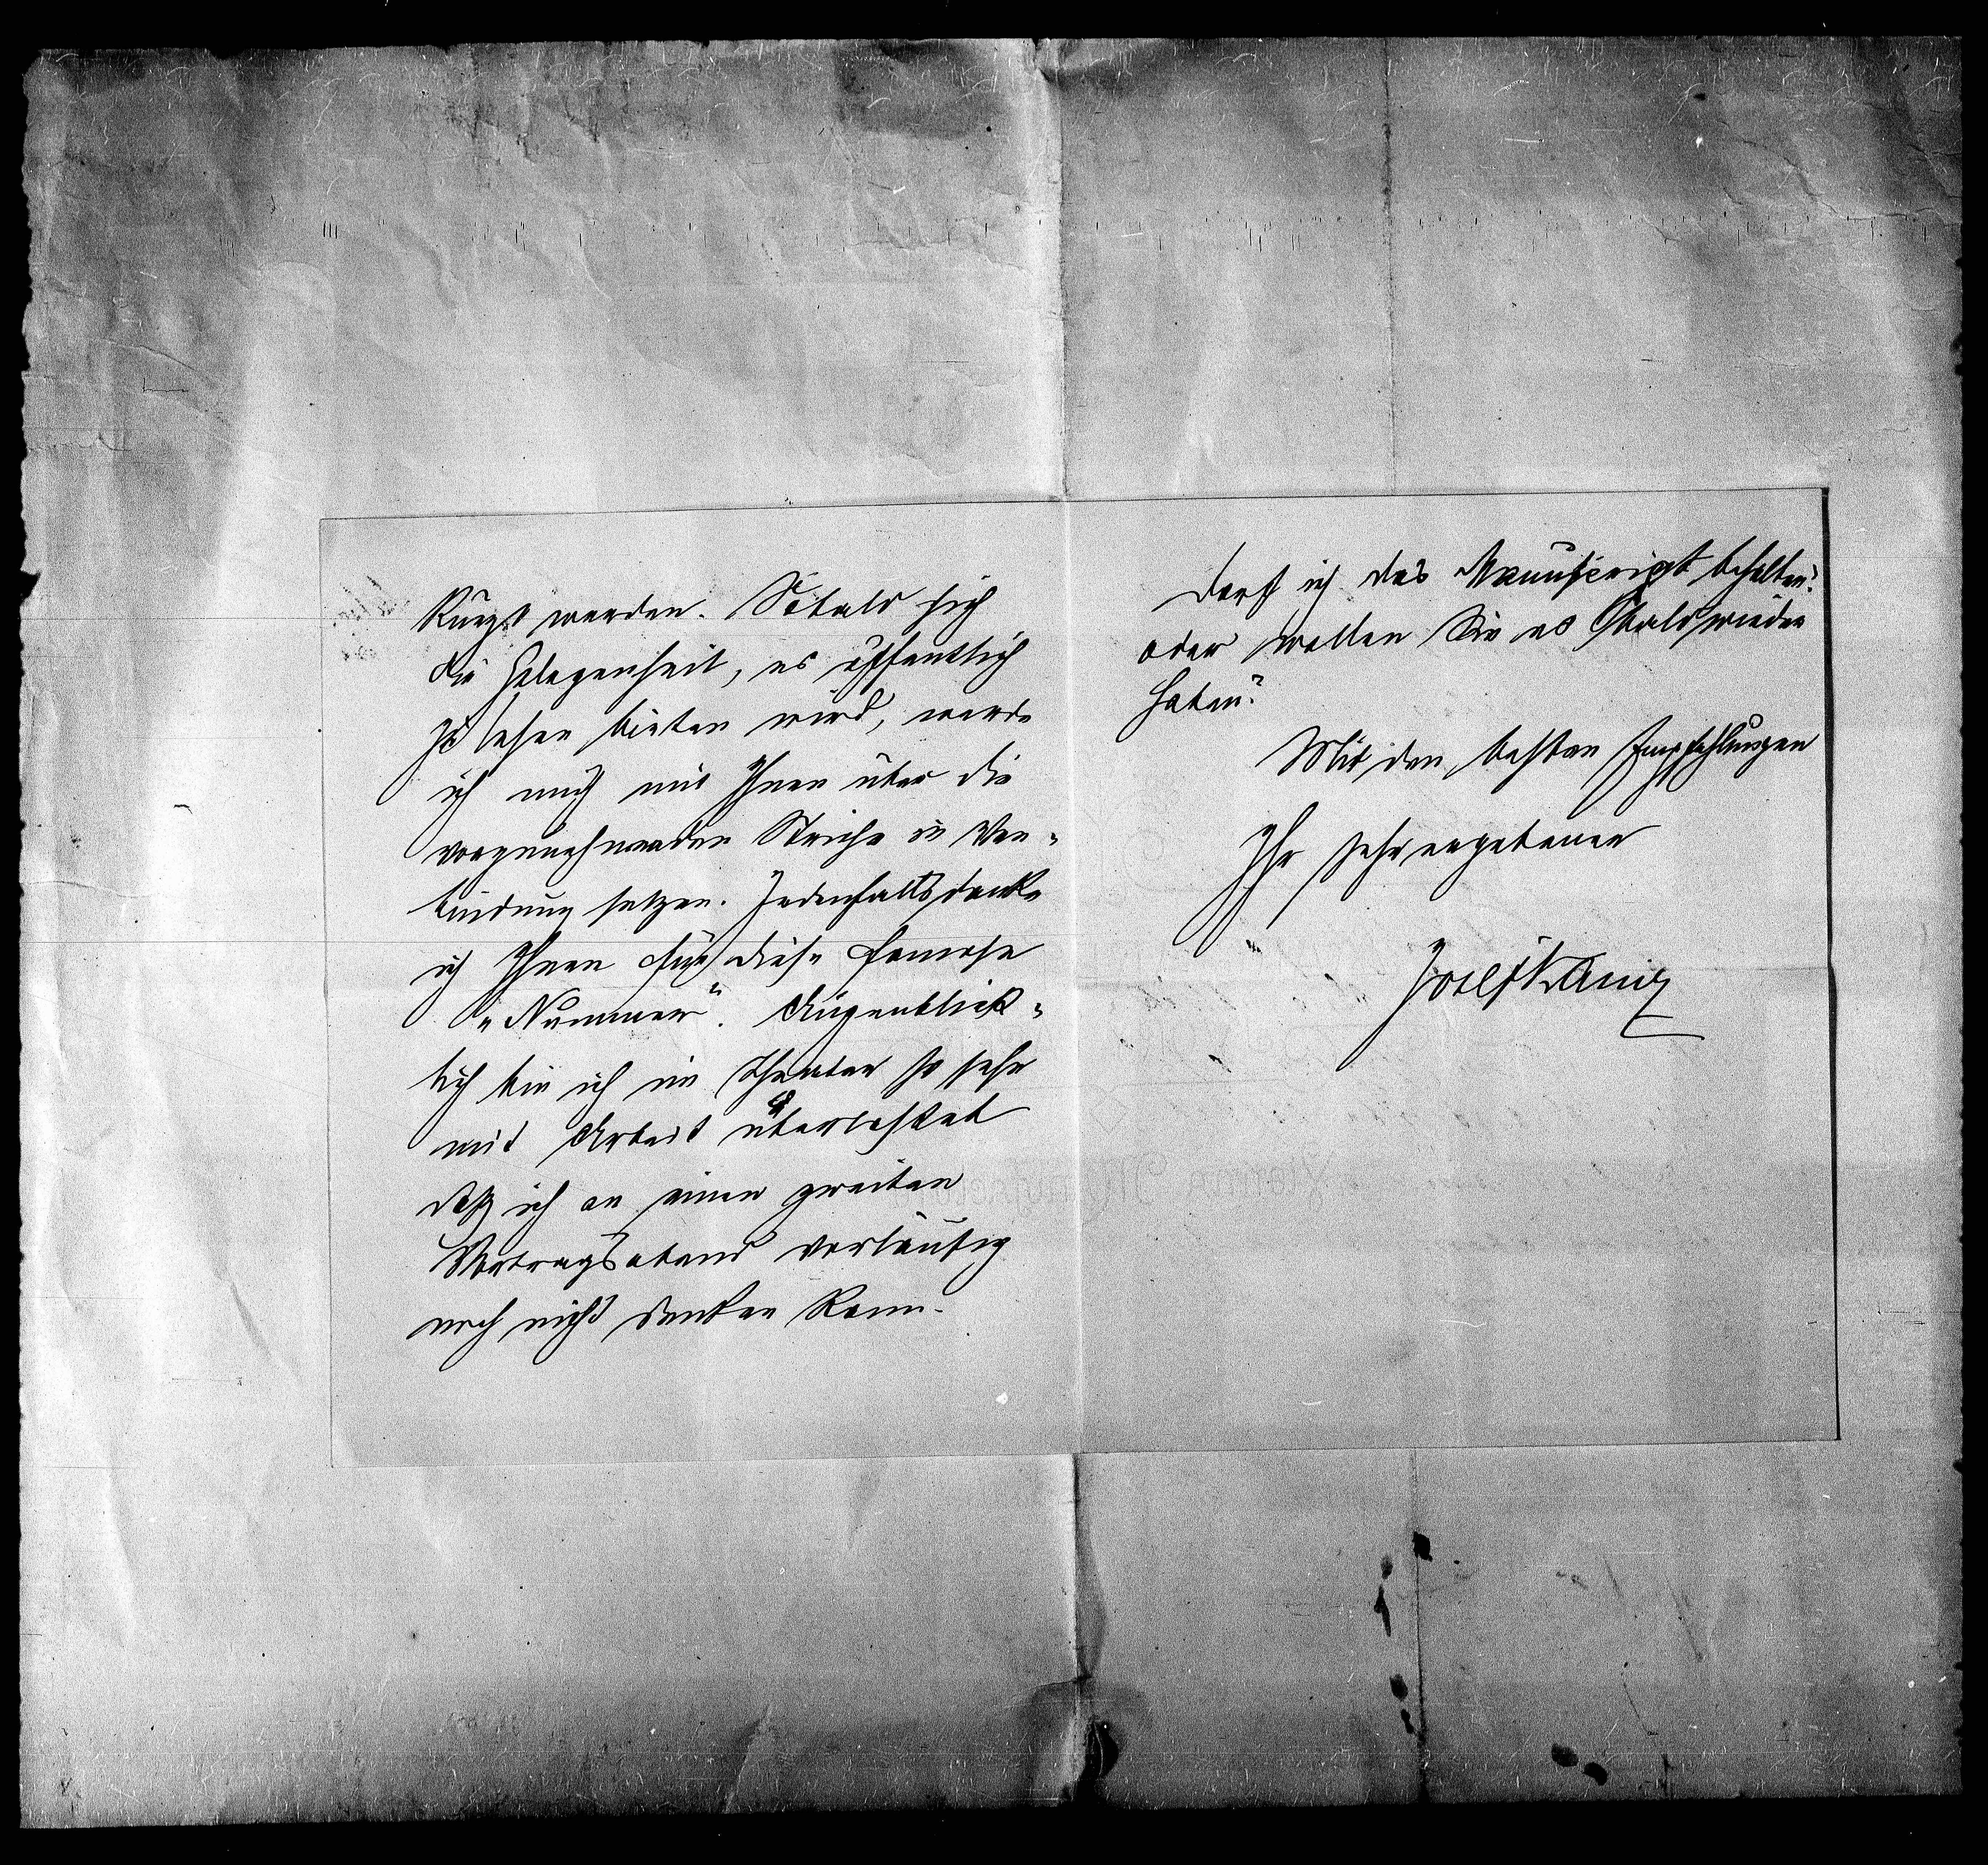 kürzt werden. Sobald sich
die Gelegenheit, es öffentlich
zu lesen bieten wird, werde
ich mich mit Ihnen über die
vorzunehmenden Striche in Ver-
bindung setzen. Jedenfalls danke
ich Ihnen für diese famose
„Nummer“. Augenblick-
lich bin ich im Theater so sehr
mit Arbeit überlastet
daß ich an einen zweiten
Vortragsabend vorläufig
noch nicht denken kann.
Darf ich das Manuscript behalten?
oder wollen Sie es bald wieder
haben?
Mit den besten Empfehlungen
Ihr sehr ergebener
Josef Kainz